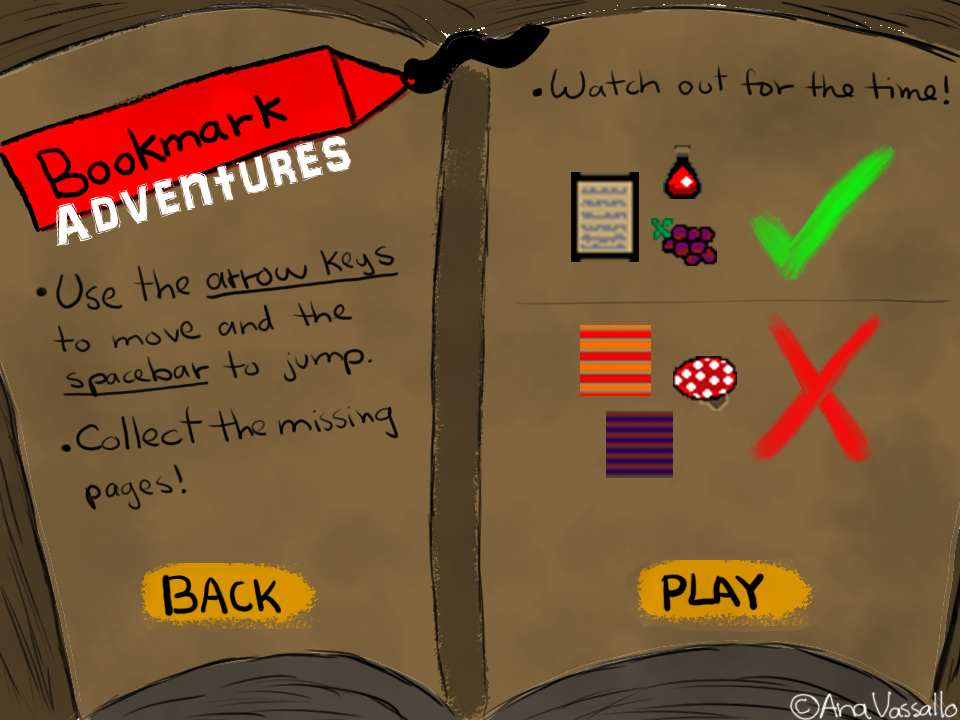 Bookmark
ADVENTURES
• Use the arrow keys
to move and the
spacebar to jump.
• Collect the missing
pages!
BACK
• Watch out for the time!
PLAY
©Ana Vassallo